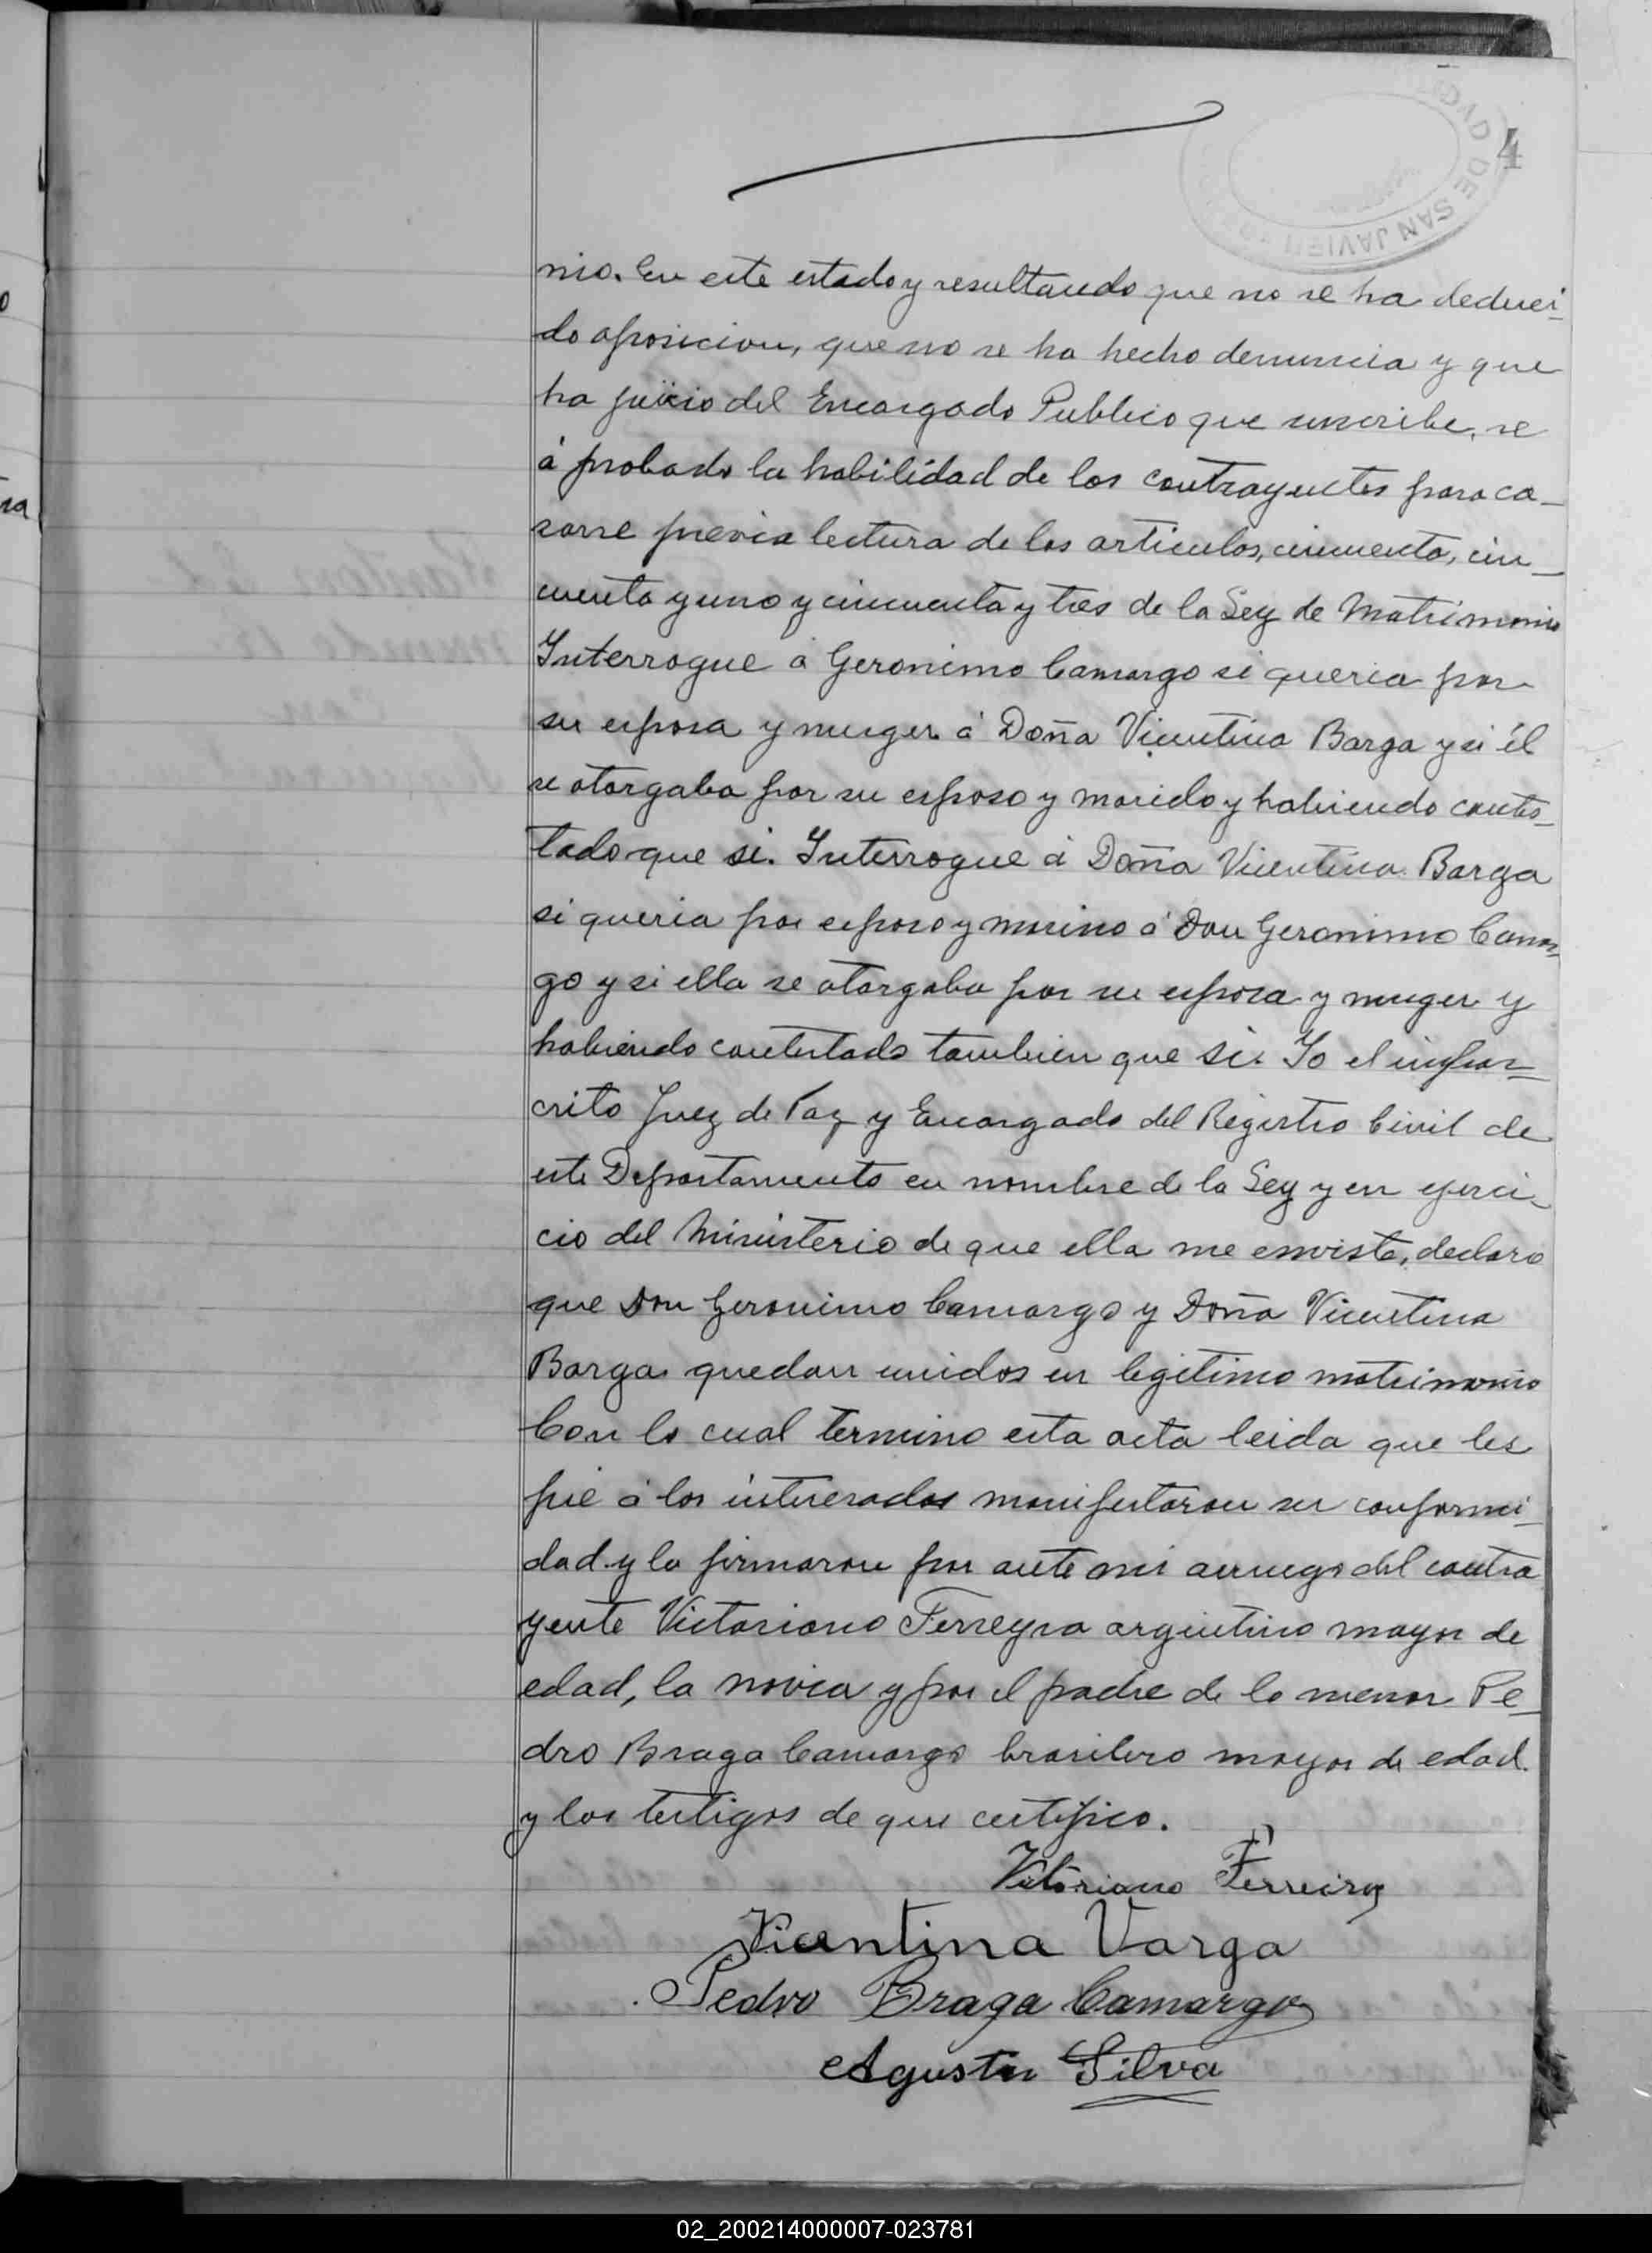 4
DAD DE SAN JAVIER
nio. En este estado y resultando que no se ha deduci-
do oposicion, que no se ha hecho denuncia y que
ha juicio del Encargado Publico que suscribe, se
á probado la habilidad de los contrayentes para ca-
sarse previa lectura de los articulos, cincuenta, cin-
cuenta y uno y cincuenta y tres de la Ley de Matrimonio
Interrogue á Geronimo Camargo si queria por
su esposa y muger á Doña Vicentina Barga y si él
se otorgaba por su esposo y marido y habiendo contes-
tado que si. Interrogue á Doña Vicentina Barga
si queria por esposo y marino á Don Geronimo Camar-
go y si ella se otorgaba por su esposa y muger y
habiendo contestado tambien que si. Yo el infras-
crito Juez de Paz y Encargado del Registro Civil de
este Departamento en nombre de la Ley y en ejerci-
cio del Ministerio de que ella me enviste, declaro
que Don Geronimo Camargo y Doña Vicentina
Barga quedan unidos en legitimo matrimonio
Con lo cual termino esta acta leida que les
fué á los interesados manifestaron su conformi-
dad y la firmaron por ante mi aruego del contra
yente Victoriano Ferreyra argentino mayor de
edad, la novia y por el padre de la menor Pe-
dro Braga Camargo brasilero mayor de edad.
y los testigos de que certifico.
Vitoriano Ferreira
Vicentina Varga
Pedro Braga Camargo
Agustin Silva
02_200214000007-023781